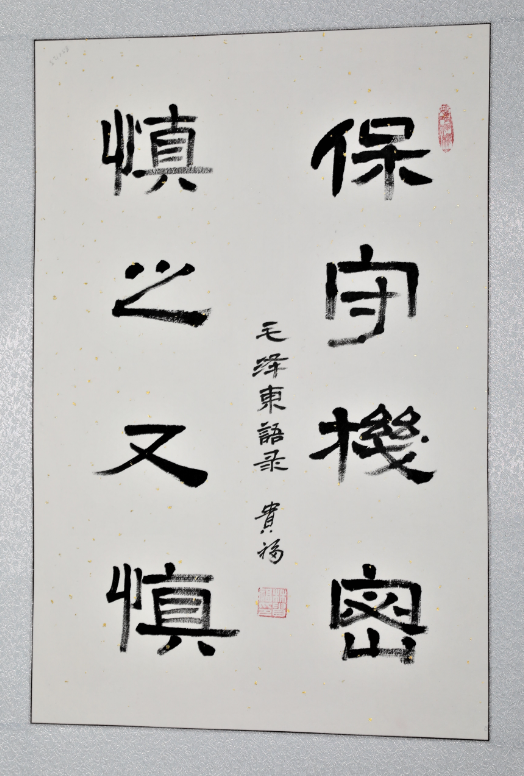 保守機密
慎之又慎
毛泽東語录 貴福